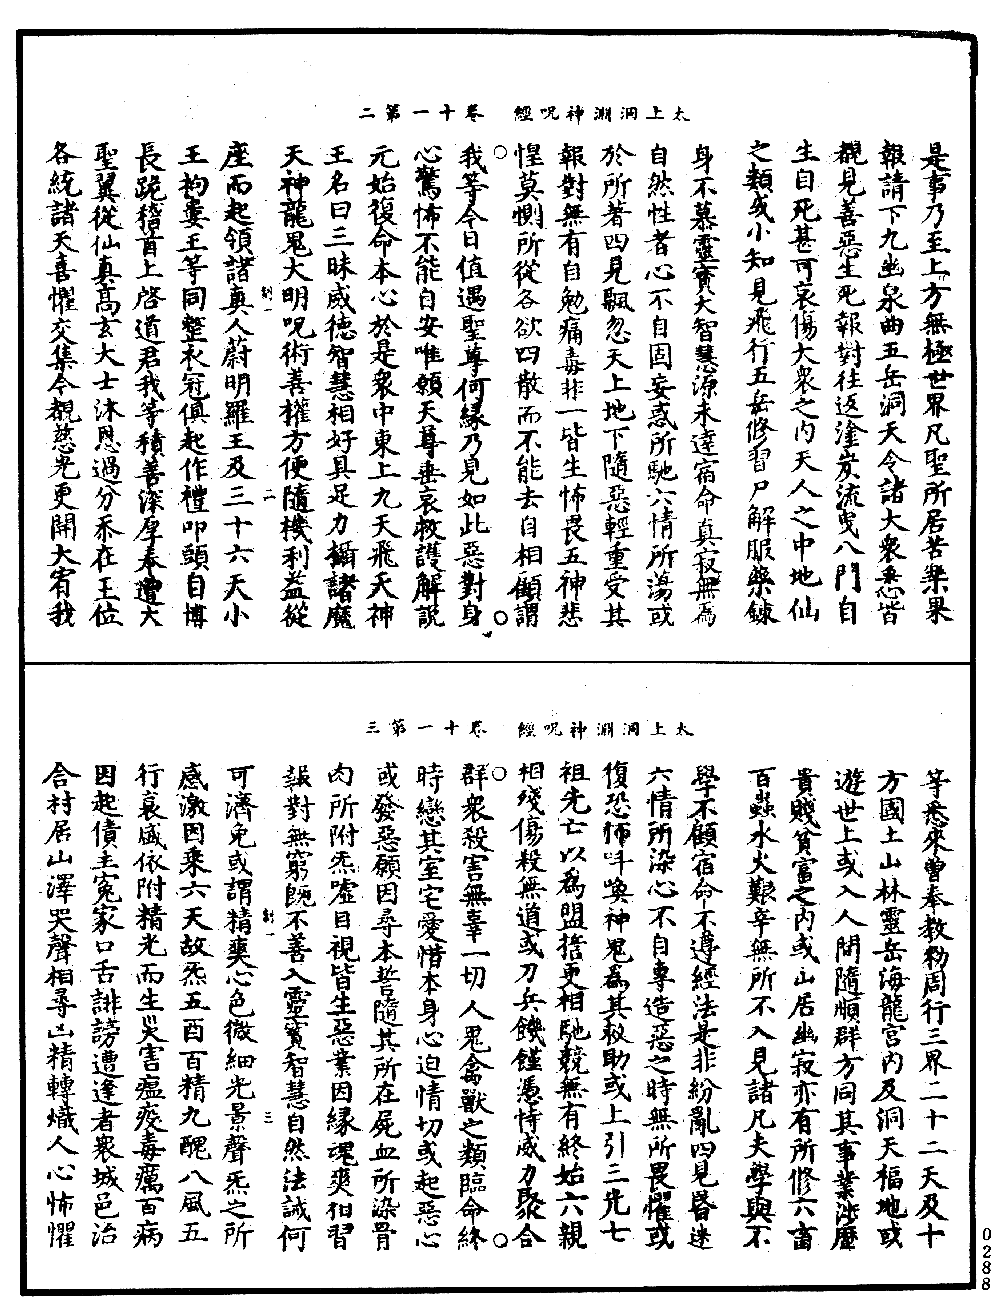 太上洞淵神呪經　卷十一第二
是事乃至上方無極世界凡聖所居苦樂果
報請下九幽泉曲五岳洞天令諸大衆悉皆
覩見善惡生死報對往返塗炭流曳八門自
生自死甚可哀傷大衆之內天人之中地仙
之類或小知見飛行五岳修習尸解服藥鍊
身不慕靈寶大智慧源未達宿命真寂無爲
自然性者心不自固妄惑所馳六情所蕩或
於所著四見飄忽天上地下隨惡輕重受其
報對無有自勉痛毒非一皆生怖畏五神悲
惶莫惻所從各欲四散而不能去自相顧謂
我等今日值遇聖尊何緣乃見如此惡對身
心驚怖不能自安唯願天尊垂哀救護解說
元始復命本心於是衆中東上九天飛天神
王名曰三昧威德智慧相好具足力攝諸魔
天神龍鬼大明呪術善權方便隨機利益從
座而起領諸真人蔚明羅王及三十六天小
王拘婁王等同整衣冠俱起作禮叩頭自博
長跪稽首上啓道君我等積善深厚奉遭大
聖翼從仙真高玄大士沐恩過分忝在王位
各統諸天喜懼交集今覩慈光更開大宥我
太上洞淵神呪經　卷十一第三
等悉來曾奉教勑周行三界二十二天及十
方國土山林靈岳海龍宮內及洞天福地或
遊世上或入人間隨順群方同其事業涉歷
貴賤貧富之內或山居幽寂亦有所修六畜
百蟲水火艱辛無所不入見諸凡夫學與不
學不顧宿命不遵經法是非紛亂四見昏迷
六情所染心不自專造惡之時無所畏懼或
復恐怖呌喚神鬼爲其救助或上引三光七
祖先亡以爲盟誓更相馳競無有終始六親
相殘傷殺無道或刀兵饑饉憑恃威力聚合
群衆殺害無辜一切人鬼禽獸之類臨命終
時戀其室宅愛惜本身心迫情切或起惡心
或發惡願因尋本誓隨其所在屍血所染骨
肉所附炁噓目視皆生惡業因緣魂爽狎習
報對無窮旣不善入靈寶智慧自然法誡何
可濟免或謂精爽心色微細光景聲炁之所
感激因乘六天故炁五酉百精九醜八風五
行衰盛依附精光而生災害瘟疫毒癘百病
因起債主寃家口舌誹謗遭逢者衆城邑治
合村居山澤哭聲相尋凶精轉熾人心怖懼
0288